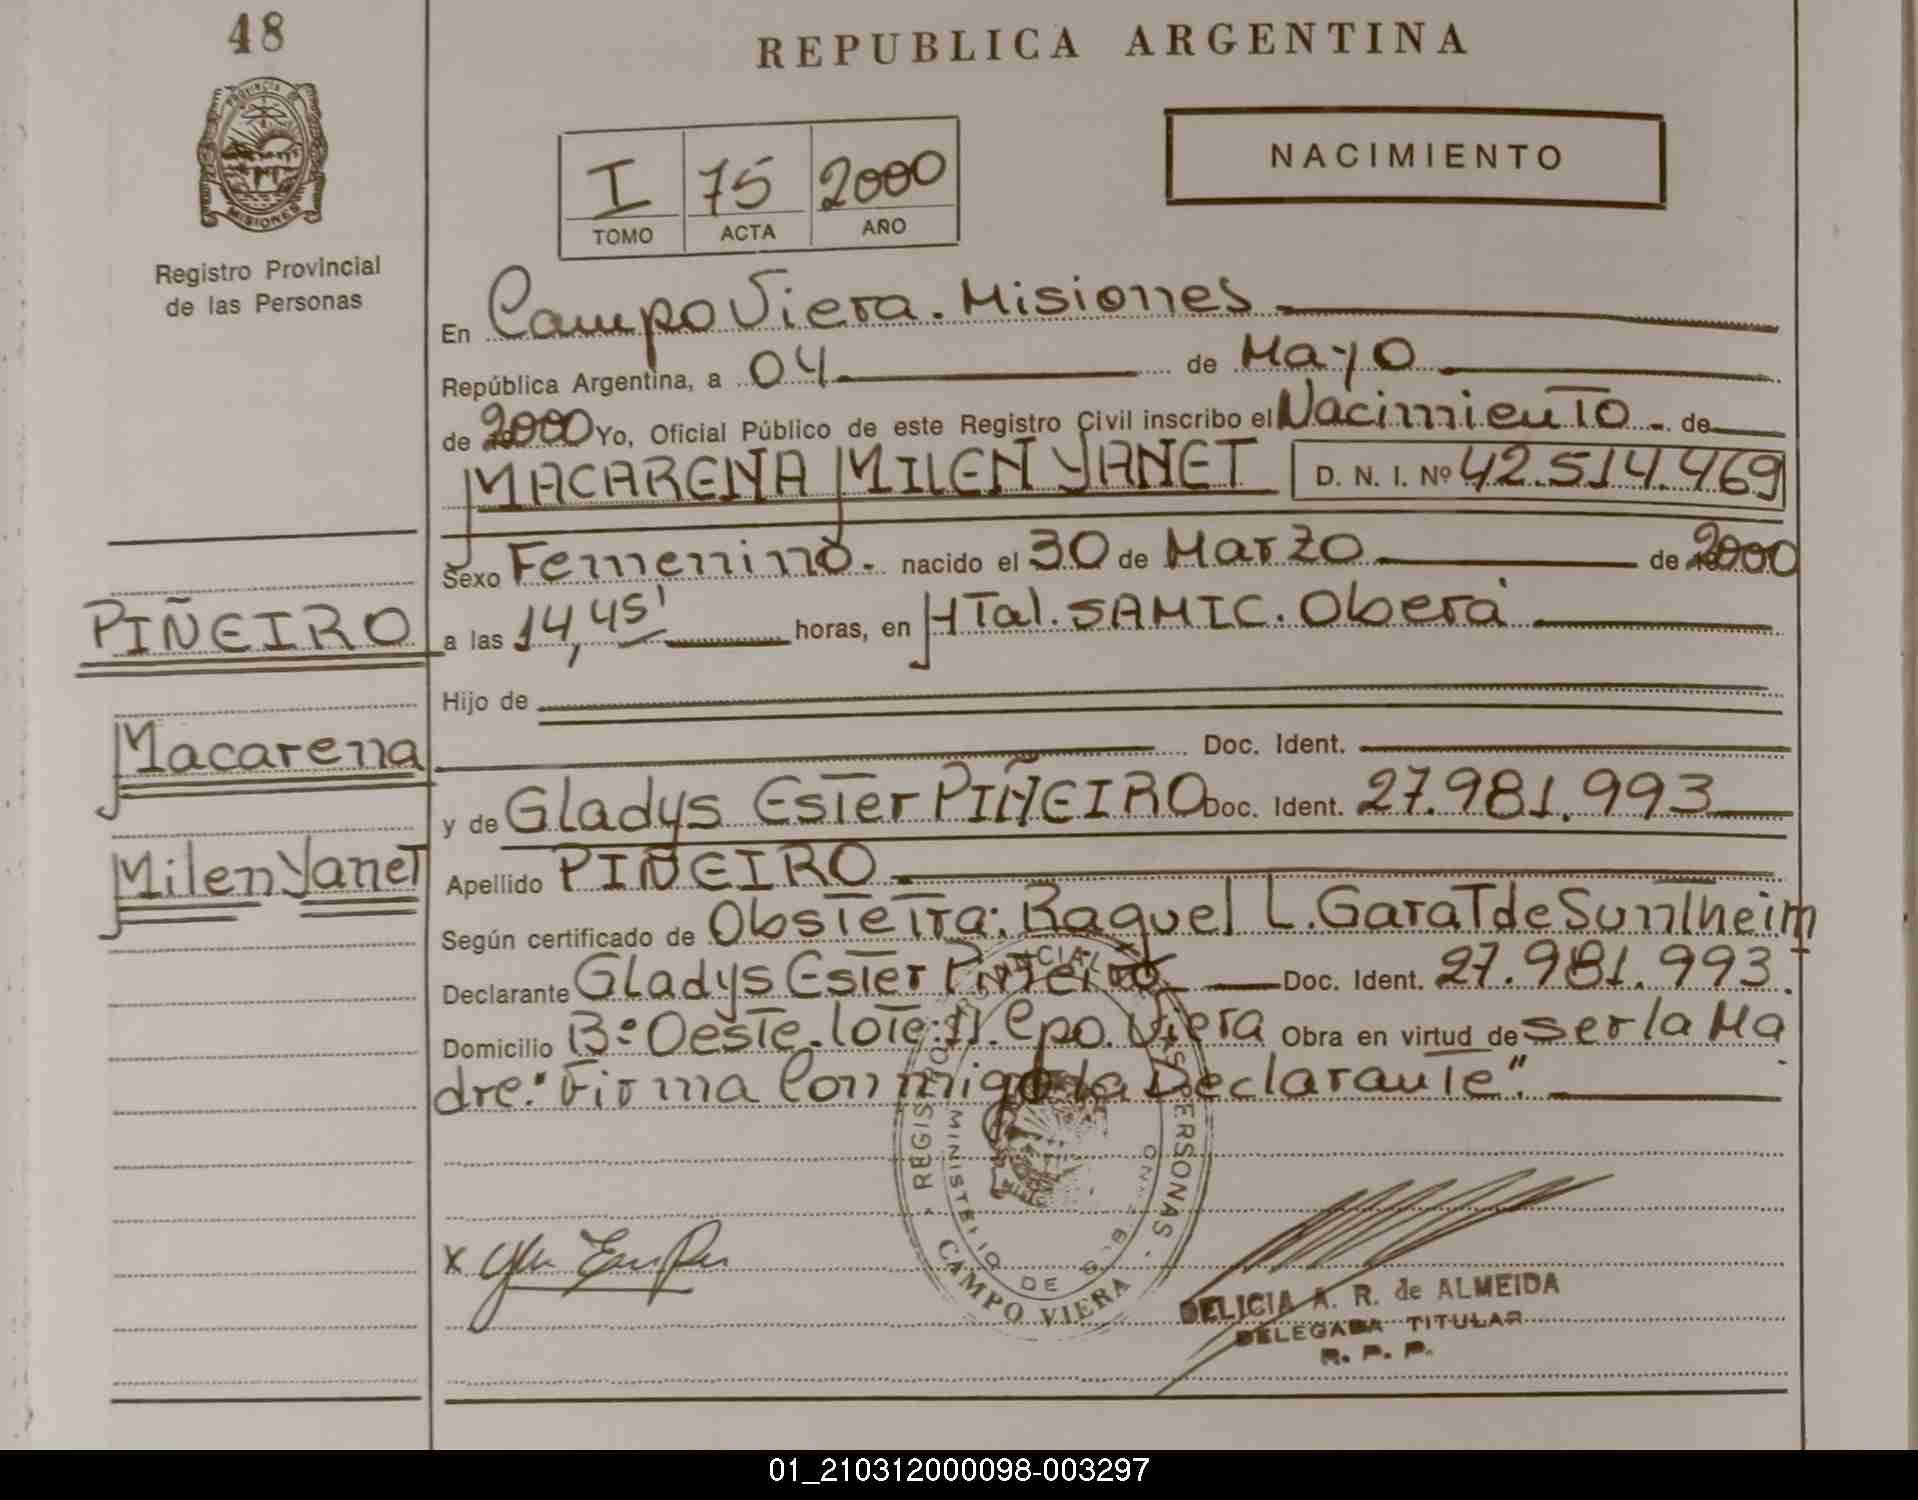 48
REPUBLICA ARGENTINA
PROVINCIA DE
MISIONES
Registro Provincial
de las Personas
NACIMIENTO
I 75 2000
TOMO ACTA AÑO
En Campo Viera. Misiones
República Argentina, a 04 de Mayo
de 2000 Yo, Oficial Público de este Registro Civil inscribo el Nacimiento de
MACARENA MILEN YANET D. N. I. Nº 42.514.469
Sexo Femenino. nacido el 30 de Marzo de 2000
PIÑEIRO
a las 14,45' horas, en HTal. SAMIC. Oberá
Hijo de
Macarena
Doc. Ident.
y de Gladys Ester PIÑEIRO Doc. Ident. 27.981.993
Milen Yanet
Apellido PIÑEIRO
Según certificado de Obstetra: Raquel L. Garat de Sunntheim
Declarante Gladys Ester Piñeiro Doc. Ident. 27.981.993.
Domicilio Bº Oeste. lote: 11. Cpo. Viera Obra en virtud de ser la Ma
dre: "Firma Conmigo la Declarante".
CAMPO VIERA
MINISTERIO DE
PERSONAS
x
DELICIA A. R. de ALMEIDA
DELEGADA TITULAR
R. P. P.
01_210312000098-003297